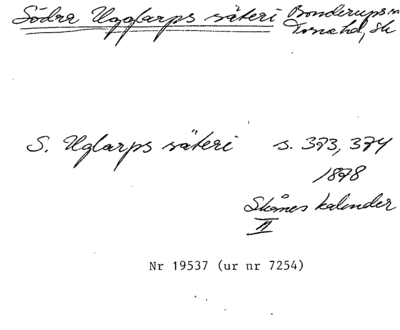 Södra Ugglarps säteri Bonderups sn
Torna hd, Sk
S. Uglarps säteri s. 373, 374
1878
Skånes kalender
II
Nr 19537 (ur nr 7254)